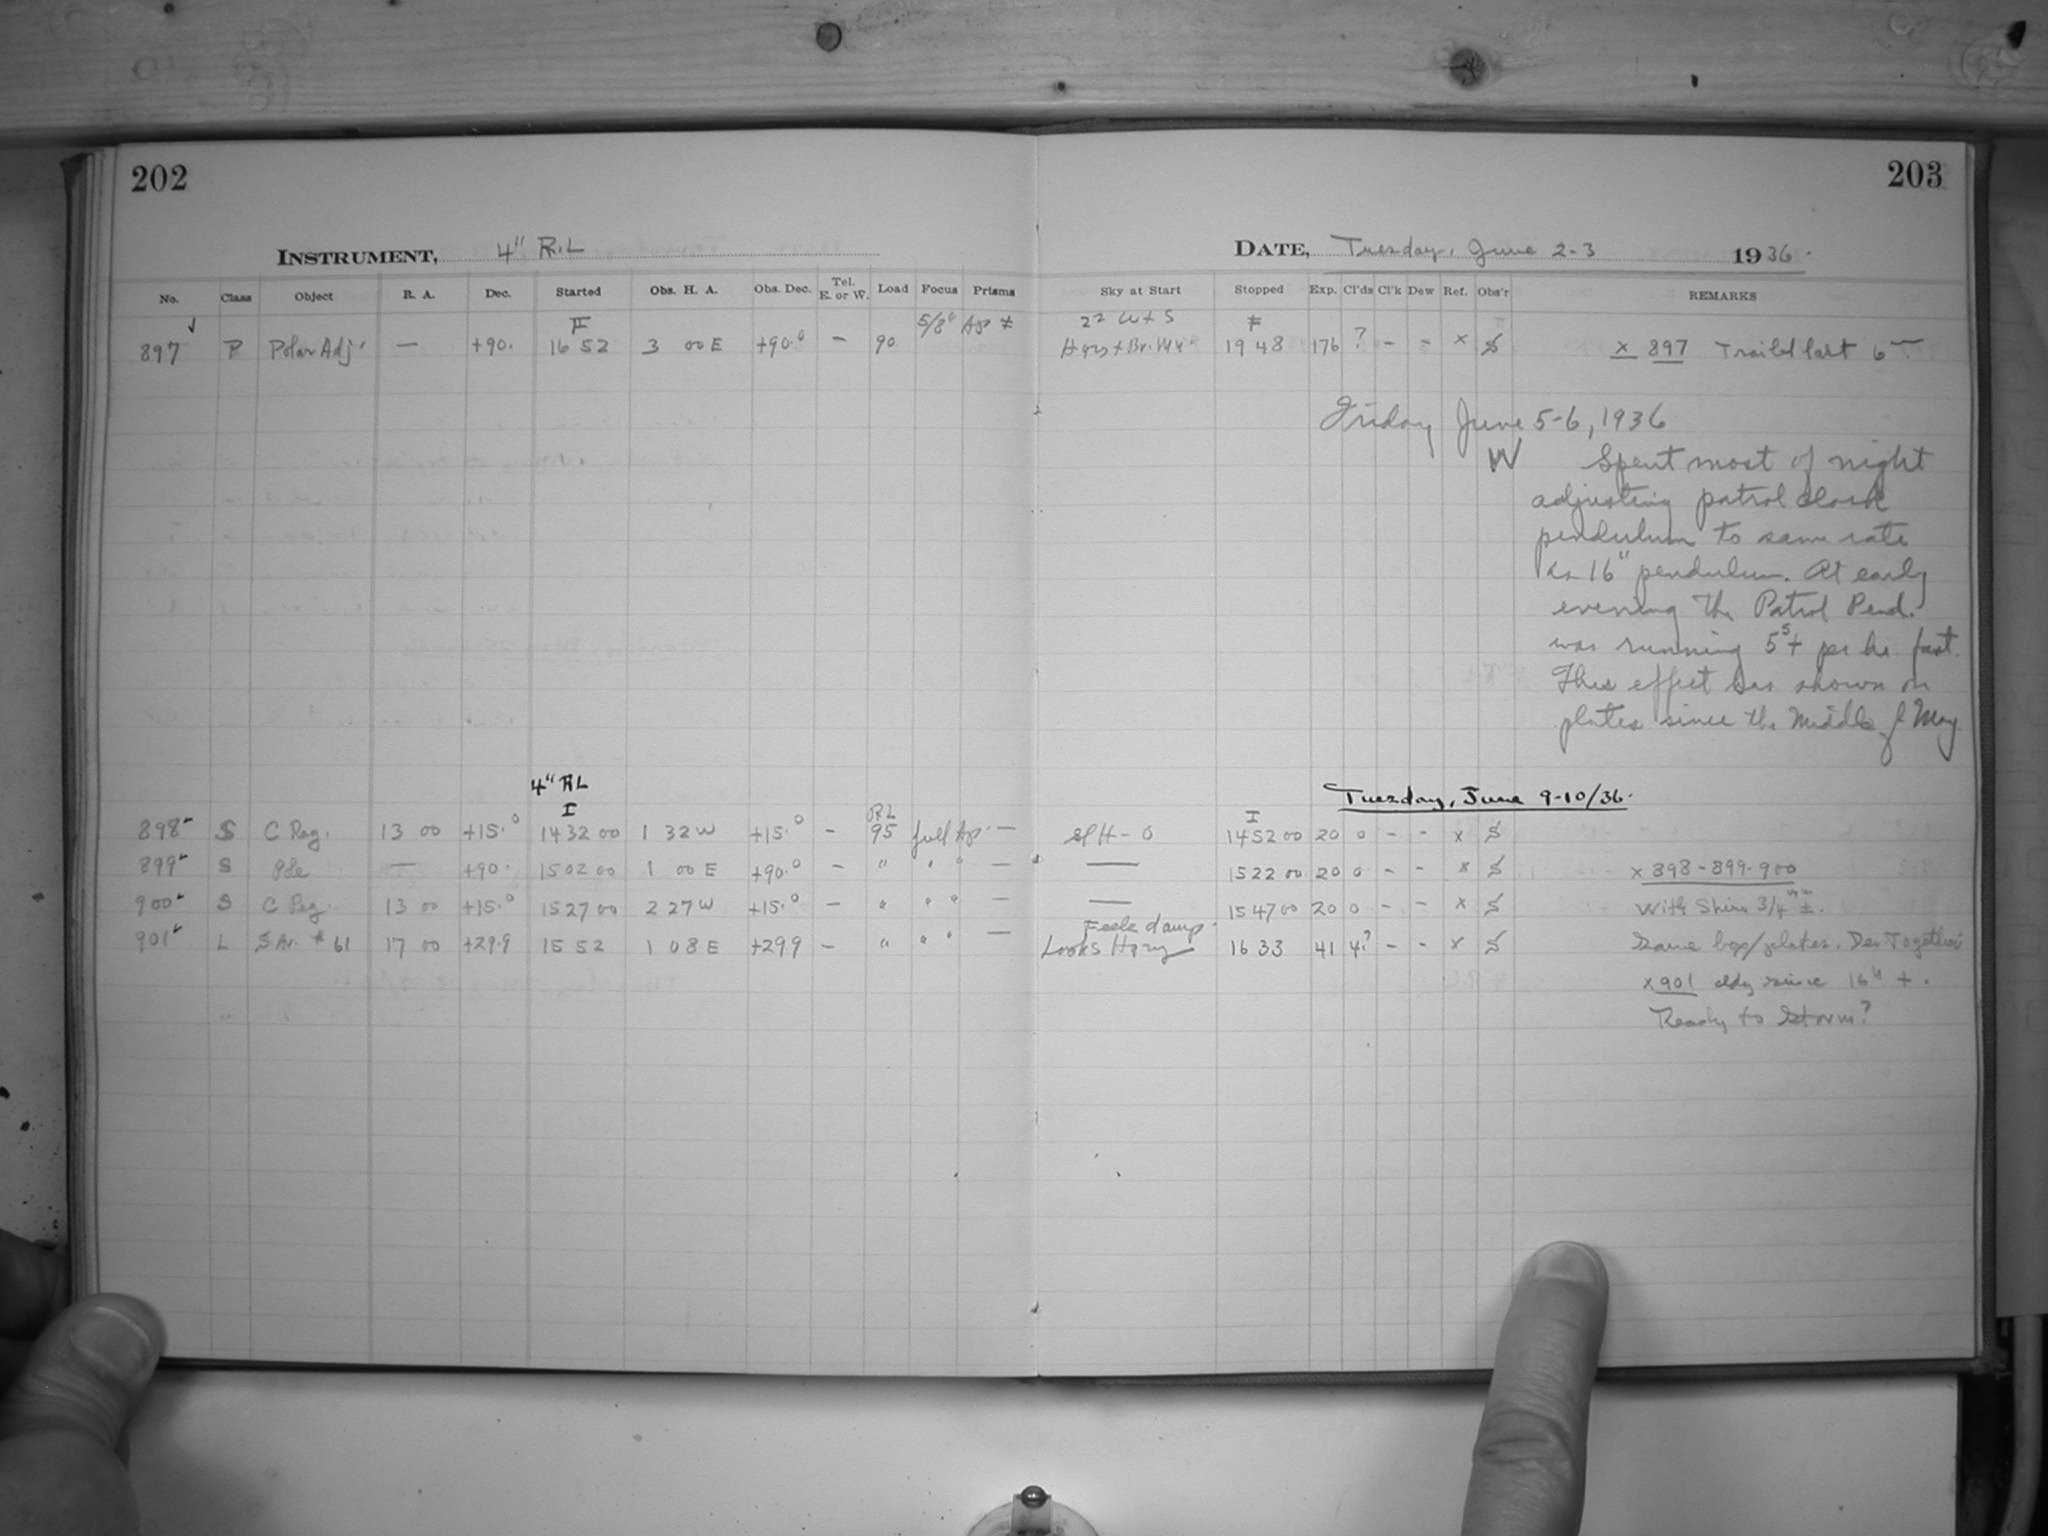 202
203
INSTRUMENT, 4" R.L
DATE, Tuesday, June 2-3 1936.
No. Class Object R. A. Dec. Started Obs. H. A. Obs. Dec. Tel. E. or W. Load Focus Prisms Sky at Start Stopped Exp. Cl'ds Cl'k Dew Ref. Obs'r REMARKS
897 P Polar Adj. — +90. 16 52 3 00 E +90.0 — 90 5/8" Ap 19 48 176 ? - - x S x 897 Trailed last 6m
Friday June 5-6, 1936
W Spent most of night
adjusting patrol clock
pendulum to same rate
as 16" pendulum. At early
evening the Patrol Pend.
was running 5s+ per hr. fast.
This effect has shown on
plates since the middle of May
4" RL
Tuesday, June 9-10/36.
I I
RL
898 S C Reg. 13 00 +15.0 14 32 00 1 32 W +15.0 - 95 full Ap. — 14 52 00 20 0 - - x S
899 S Pole — +90. 15 02 00 1 00 E +90.0 — " " " — — 15 22 00 20 0 - - x S x 898-899-900
900 S C Reg. 13 00 +15.0 15 27 00 2 27 W +15.0 — " " " — — 15 47 00 20 0 - - x S With Shim 3/4 mm ±.
Feels damp.
901 L S.Ar. #61 17 00 +29.9 15 52 1 08 E +29.9 — " " " — Looks Hazy 16 33 41 4? - - x S Same box/plates. Dev Together
x 901 cldy since 16h +.
Ready to Storm?